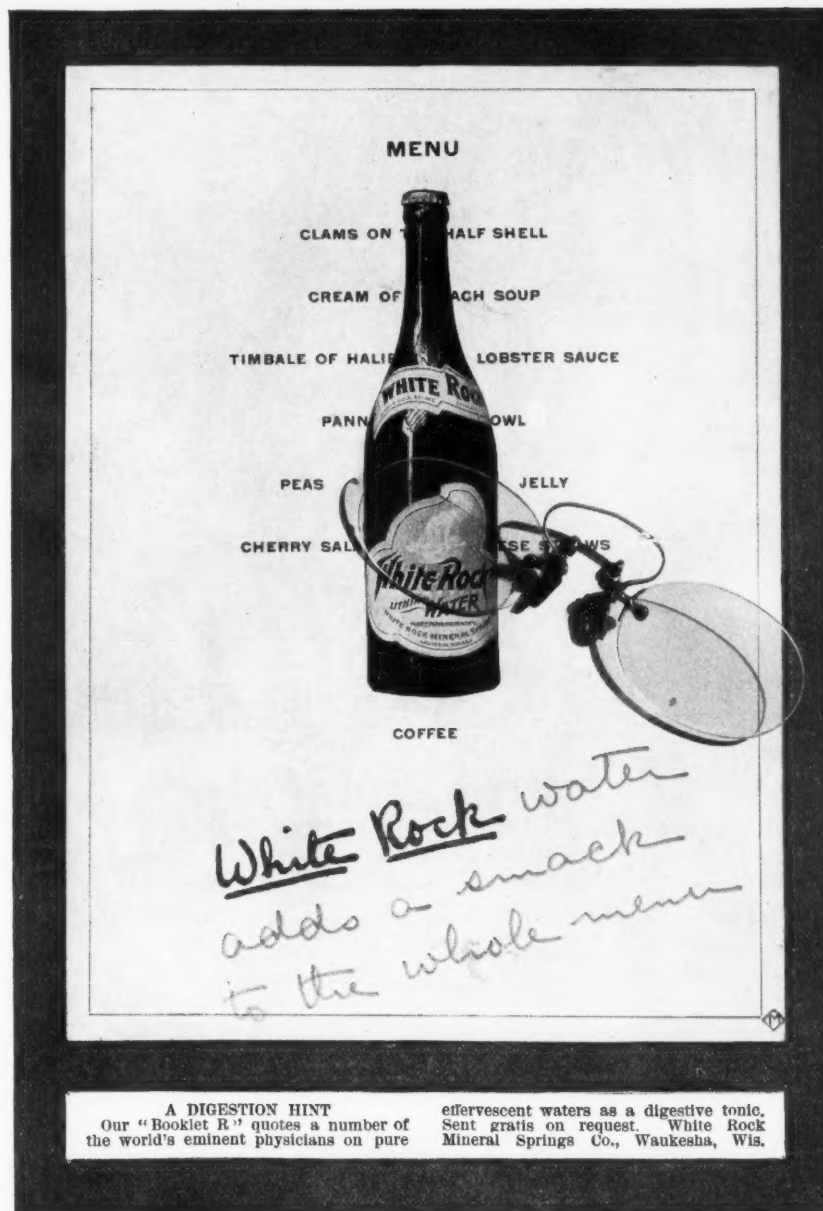 MENU
CLAMS ON T HALF SHELL
CREAM OF ACH SOUP
TIMBALE OF HALIB LOBSTER SAUCE
PANN OWL
PEAS JELLY
CHERRY SAL ESE S WS
WHITE ROCK
White Rock
WATER
WHITE ROCK MINERAL SPRING
COFFEE
White Rock water
adds a smack
to the whole menu
M
A DIGESTION HINT
Our "Booklet R" quotes a number of
the world's eminent physicians on pure
effervescent waters as a digestive tonic.
Sent gratis on request. White Rock
Mineral Springs Co., Waukesha, Wis.